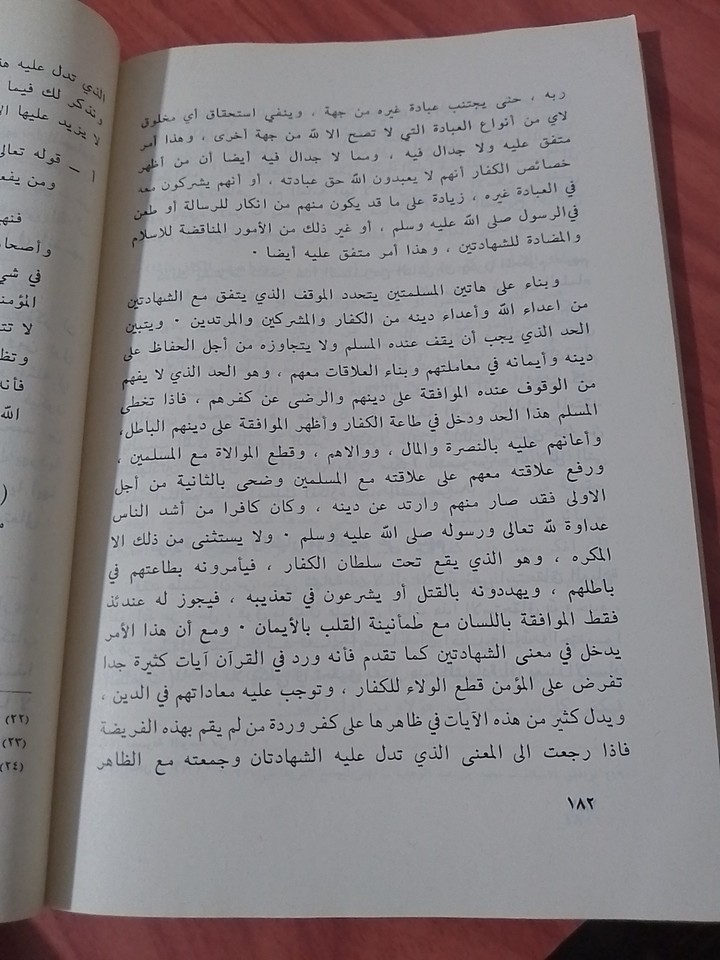 ربه ، حتى يجتنب عبادة غيره من جهة ، وينفي استحقاق أي مخلوق
لاي من أنواع العبادة التي لا تصح الا لله من جهة أخرى ، وهذا أمر
متفق عليه ولا جدال فيه ، ومما لا جدال فيه أيضا أن من أظهر
خصائص الكفار أنهم لا يعبدون الله حق عبادته ، أو أنهم يشركون معه
في العبادة غيره ، زيادة على ما قد يكون منهم من انكار للرسالة أو طعن
في الرسول صلى الله عليه وسلم ، أو غير ذلك من الأمور المناقضة للاسلام
والمضادة للشهادتين ، وهذا أمر متفق عليه أيضا ٠
وبناء على هاتين المسلمتين يتحدد الموقف الذي يتفق مع الشهادتين
من اعداء الله وأعداء دينه من الكفار والمشركين والمرتدين ٠ ويتبين
الحد الذي يجب أن يقف عنده المسلم ولا يتجاوزه من أجل الحفاظ على
دينه وأيمانه في معاملتهم وبناء العلاقات معهم ، وهو الحد الذي لا يفهم
من الوقوف عنده الموافقة على دينهم والرضى عن كفرهم ، فاذا تخطى
المسلم هذا الحد ودخل في طاعة الكفار وأظهر الموافقة على دينهم الباطل،
وأعانهم عليه بالنصرة والمال ، ووالاهم ، وقطع الموالاة مع المسلمين ،
ورفع علاقته معهم على علاقته مع المسلمين وضحى بالثانية من أجل
الاولى فقد صار منهم وارتد عن دينه ، وكان كافرا من أشد الناس
عداوة لله تعالى ورسوله صلى الله عليه وسلم ٠ ولا يستثنى من ذلك الا
المكره ، وهو الذي يقع تحت سلطان الكفار ، فيأمرونه بطاعتهم في
باطلهم ، ويهددونه بالقتل أو يشرعون في تعذيبه ، فيجوز له عندئذ
فقط الموافقة باللسان مع طمأنينة القلب بالأيمان ٠ ومع أن هذا الأمر
يدخل في معنى الشهادتين كما تقدم فأنه ورد في القرآن آيات كثيرة جدا
تفرض على المؤمن قطع الولاء للكفار ، وتوجب عليه معاداتهم في الدين ،
ويدل كثير من هذه الآيات في ظاهرها على كفر وردة من لم يقم بهذه الفريضة
فاذا رجعت الى المعنى الذي تدل عليه الشهادتان وجمعته مع الظاهر
١٨٢
الذي تدل عليه
ونذكر لك فيما
لا يزيد عليها
أ – قوله تعالى
ومن يفع
وأصحا
في شي
المؤمن
لا تت
وتظ
فأنه
الله
(٢٢)
(٢٣)
(٢٤)